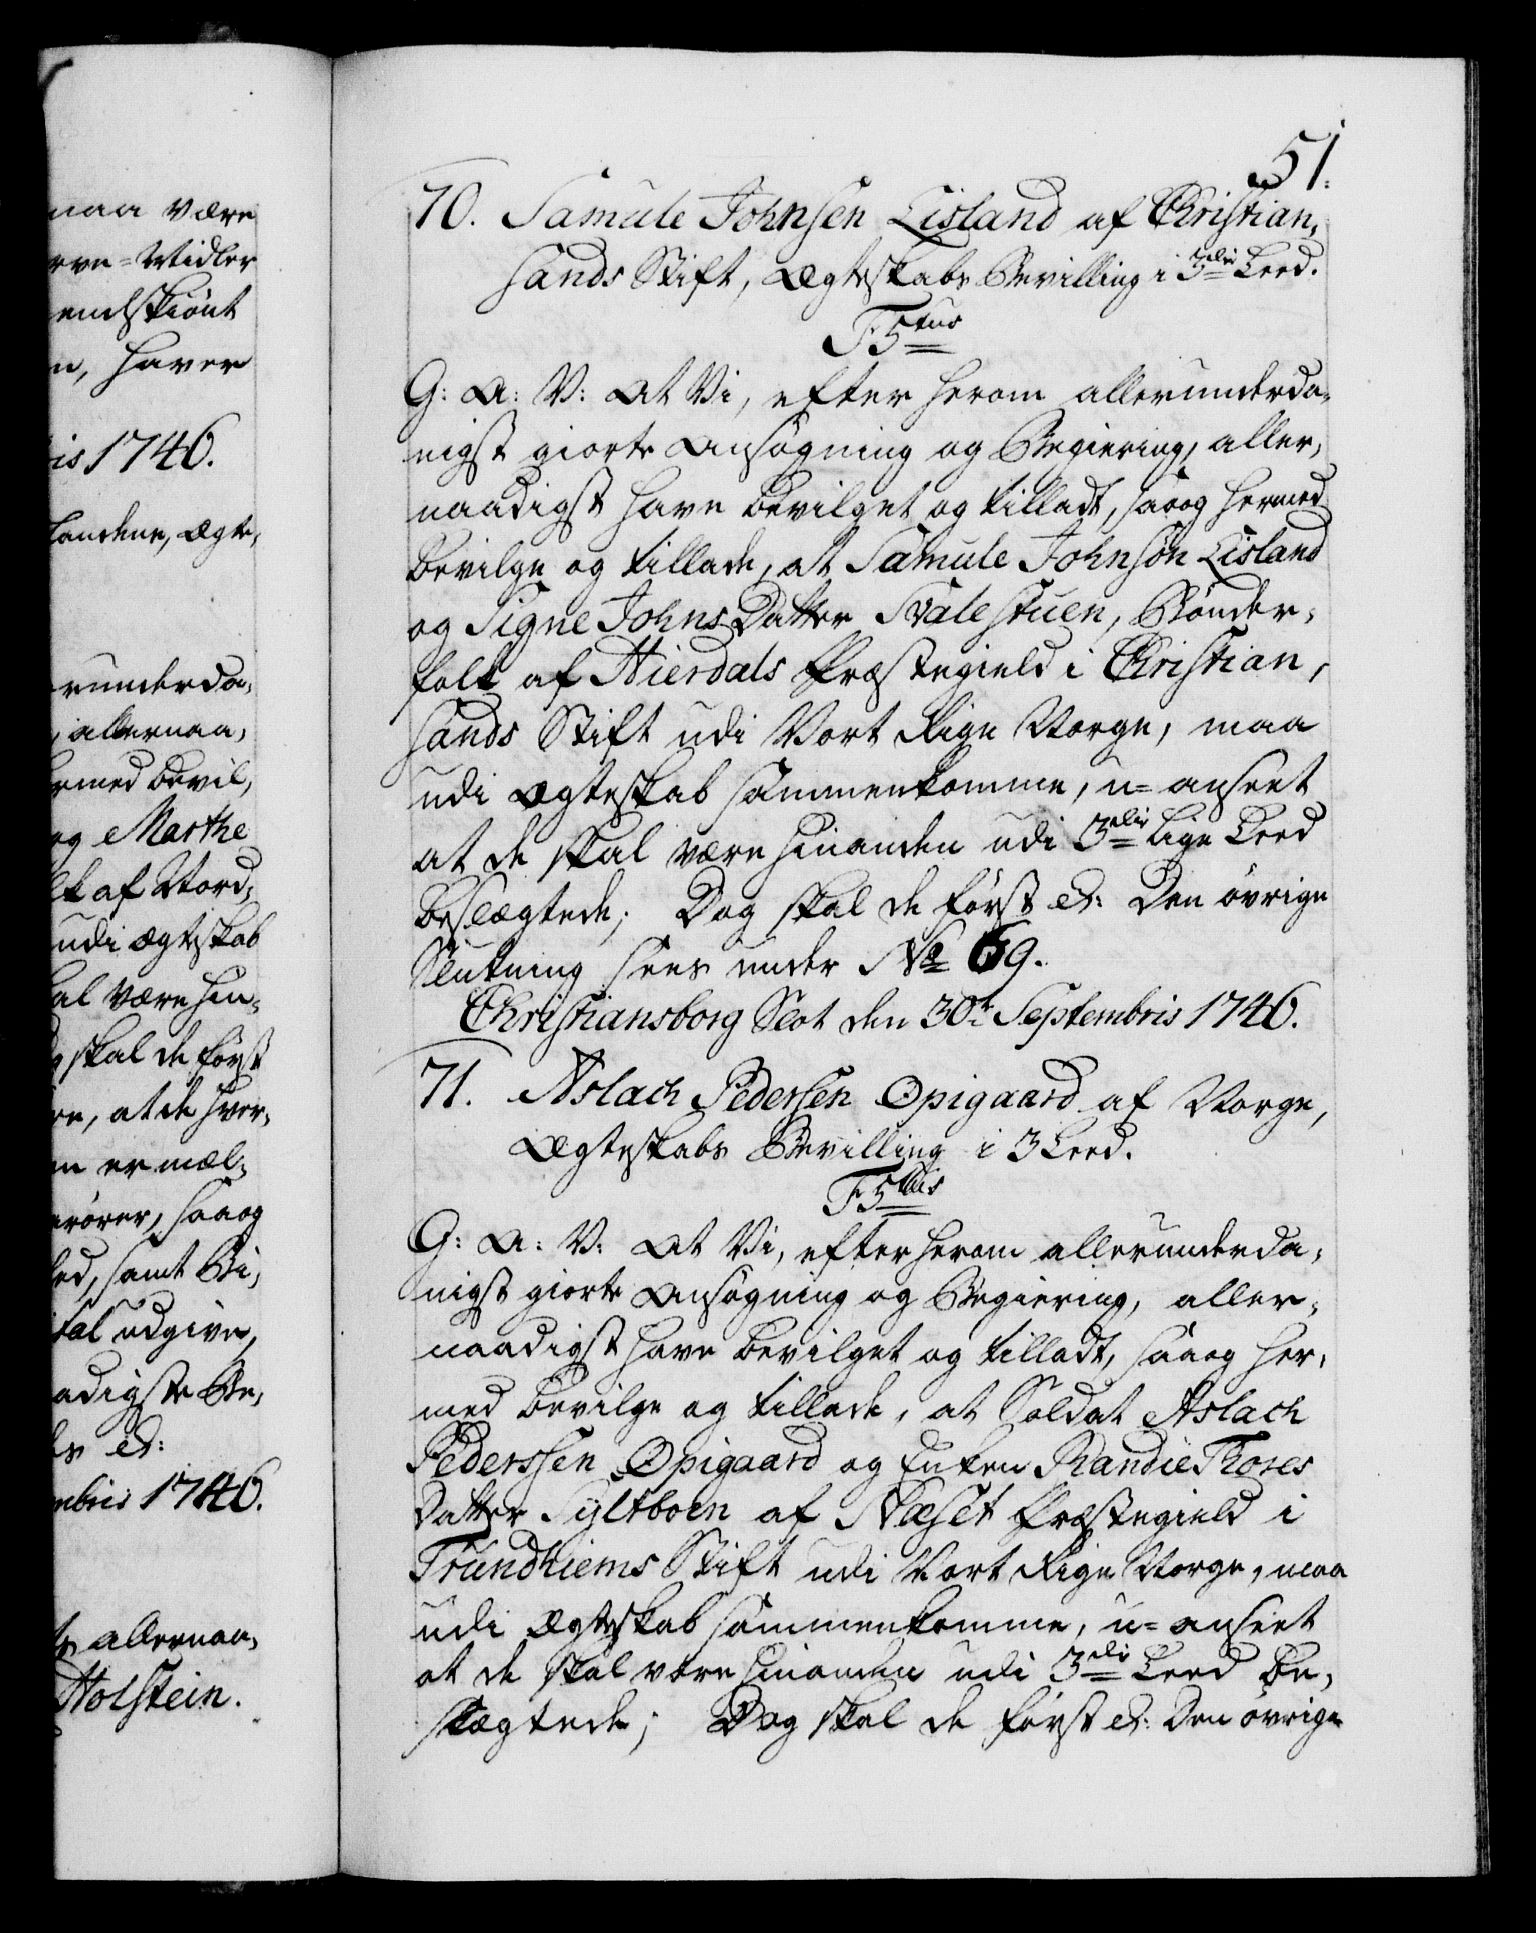 51.
70. Samule Johnsen Lisland af Christian,
sands Stift, Ægteskabs Bevilling i 3die Leed.
F5tus
G: A: V: At Vi, efter herom allerunderda,
nigst giorte Ansøgning og Begiering, aller,
naadigst have bevilget og tilladt, saaog hermed
bevilge og tillade, at Samule Johnsøn Lisland
og Signe Johns Datter Svalestuen, Bønder,
folk af Hierdals Præstegield i Christian,
sands Stift udi Vort Rige Norge, maa
udi Ægteskab sammenkomme, u=anseet
at de skal være hinanden udi 3die lige Leed
beslægtede; Dog skal de først &: Den øvrige
Slutning sees under No 69.
Christiansborg Slot den 30te Septembris 1746.
71. Aslach Pedersen Opigaard af Norge,
Ægteskabs Bevilling i 3 Leed.
F5tus
G: A: V: At Vi, efter herom allerunderda,
nigst giorte Ansøgning og Begiering, aller,
naadigst have bevilget og tilladt, saaog her,
med bevilge og tillade, at Soldat Aslach
Pederssen Opigaard og Enken Randie Thores
Datter Syltboen af Næset Præstegield i
Trundhiems Stift udi Vort Rige Norge, maa
udi Ægteskab sammenkomme, u=anseet
at de skal være hinanden udi 3die Leed be,
slægtede; Dog skal de først &: Den øvrige
maa være
endskiønt
n, haver
is 1746.
landene, Ægte,
runderda,
, allernaa,
rmed bevil,
og Marthe
lk af Nord,
udi Ægteskab
al være hin,
g skal de først
re, at de hver,
n er mæl,
rører, saaog
ed, samt Bi,
tal udgive,
adigste Be,
&:
mbris 1746.
allernaa,
Holstein.